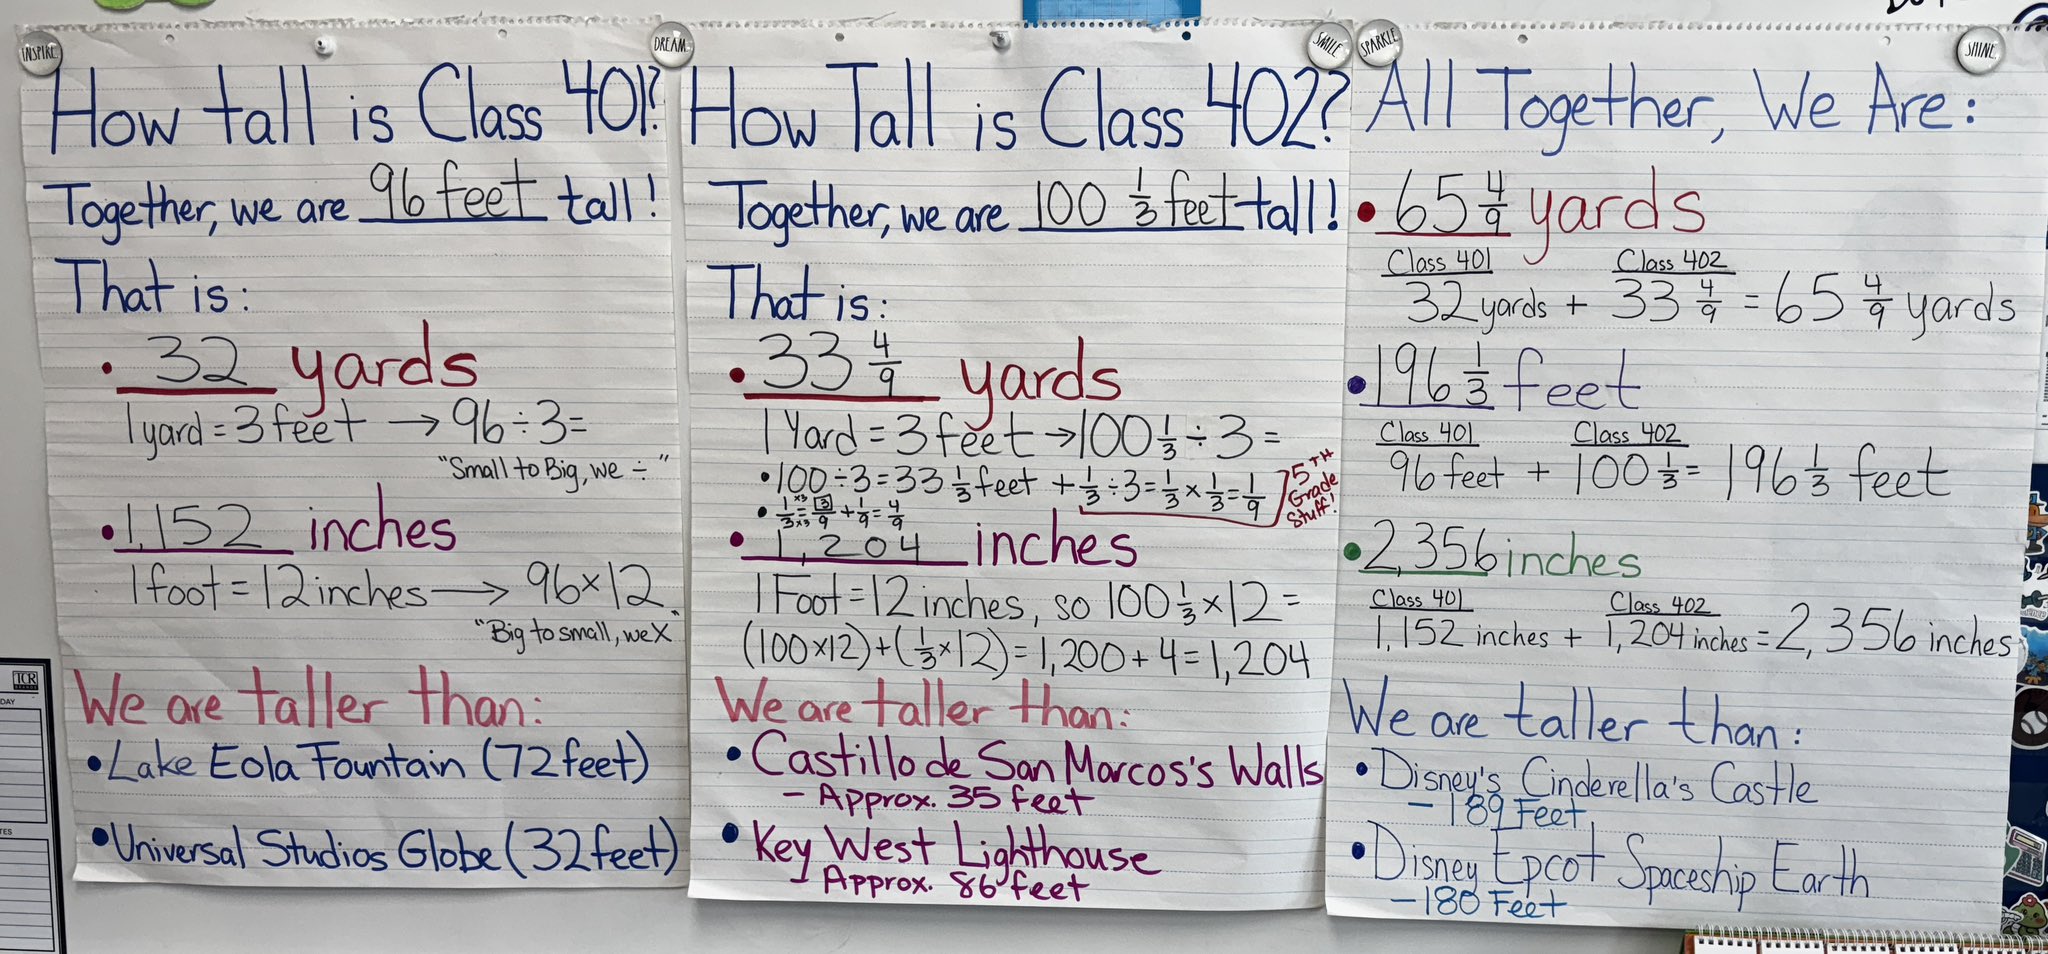 INSPIRE
DREAM
SMILE
SPARKLE
SHINE
How tall is Class 401?
Together, we are 96 feet tall!
That is:
• 32 yards
1 yard = 3 feet → 96 ÷ 3 =
"Small to Big, we ÷"
• 1,152 inches
1 foot = 12 inches → 96 × 12
"Big to small, we X"
We are taller than:
• Lake Eola Fountain (72 feet)
• Universal Studios Globe (32 feet)
How Tall is Class 402?
Together, we are 100 1/3 feet tall!
That is:
• 33 4/9 yards
1 Yard = 3 feet → 100 1/3 ÷ 3 =
• 100 ÷ 3 = 33 1/3 feet + 1/3 ÷ 3 = 1/3 × 1/3 = 1/9
5TH Grade Stuff!
• 1/3 ×3 ×3 = 3/9 + 1/9 = 4/9
• 1,204 inches
1 Foot = 12 inches, so 100 1/3 × 12 =
(100 × 12) + (1/3 × 12) = 1,200 + 4 = 1,204
We are taller than:
• Castillo de San Marcos's Walls
- Approx. 35 feet
• Key West Lighthouse
- Approx. 86 feet
All Together, We Are:
• 65 4/9 yards
Class 401 Class 402
32 yards + 33 4/9 = 65 4/9 yards
• 196 1/3 feet
Class 401 Class 402
96 feet + 100 1/3 = 196 1/3 feet
• 2,356 inches
Class 401 Class 402
1,152 inches + 1,204 inches = 2,356 inches
We are taller than:
• Disney's Cinderella's Castle
- 189 Feet
• Disney Epcot Spaceship Earth
- 180 Feet
TCR